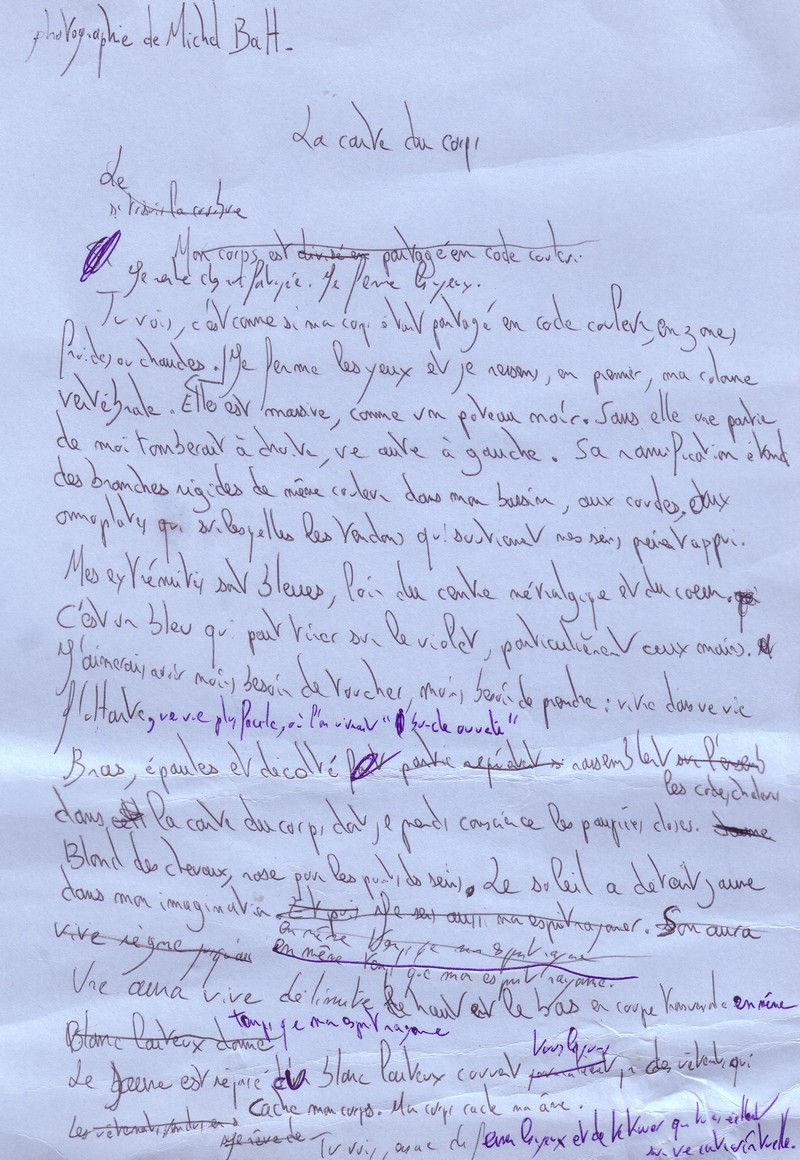 photographie de Michel Batt.
La carte du corps
Le
Mon corps est divisé en partagé en code couleur.
Je ferme les yeux.
Tu vois, c'est comme si ma corps était partagé en code couleur, en zones
froides ou chaudes. Je ferme les yeux et je ressens, en premier, ma colonne
vertébrale. Elle est massive, comme un poteau noir. Sans elle une partie
de moi tomberait à droite, une autre à gauche. Sa ramification étend
des branches rigides de même couleur dans mon bassin, aux coudes, aux
omoplates sur lesquelles les tendons qui soutiennent mes seins prennent appui.
Mes extrémités sont bleues, loin du centre névralgique et du coeur.
C'est un bleu qui peut tirer sur le violet, particulièrement aux mains.
J'aimerais avoir moins besoin de toucher, moins besoin de prendre : vivre dans une vie
flottante, une vie plus facile, où l'on vivrait "
Bras, épaules et décolté partie rassemblent
les codes chaleur
dans la carte du corps dont je prends conscience les paupières closes.
Blond des cheveux, rose pour les pointes des seins. Le soleil a déteint jaune
dans mon imagination Et puis mon esprit rayonner. Son aura
vive règne jusqu'au
en même temps que mon esprit rayonne
en même temps que mon esprit rayonne.
Une aura vive délimite le haut et le bas en coupe transversale en même
temps que mon esprit rayonne
Blanc laiteux donne
Le jaune est rejoint du blanc laiteux couvert par des vêtements qui
cache mon corps. Mon corps cache mon âme.
Les vêtements
Je rêve de
Tu vois, essaie de fermer les yeux et de